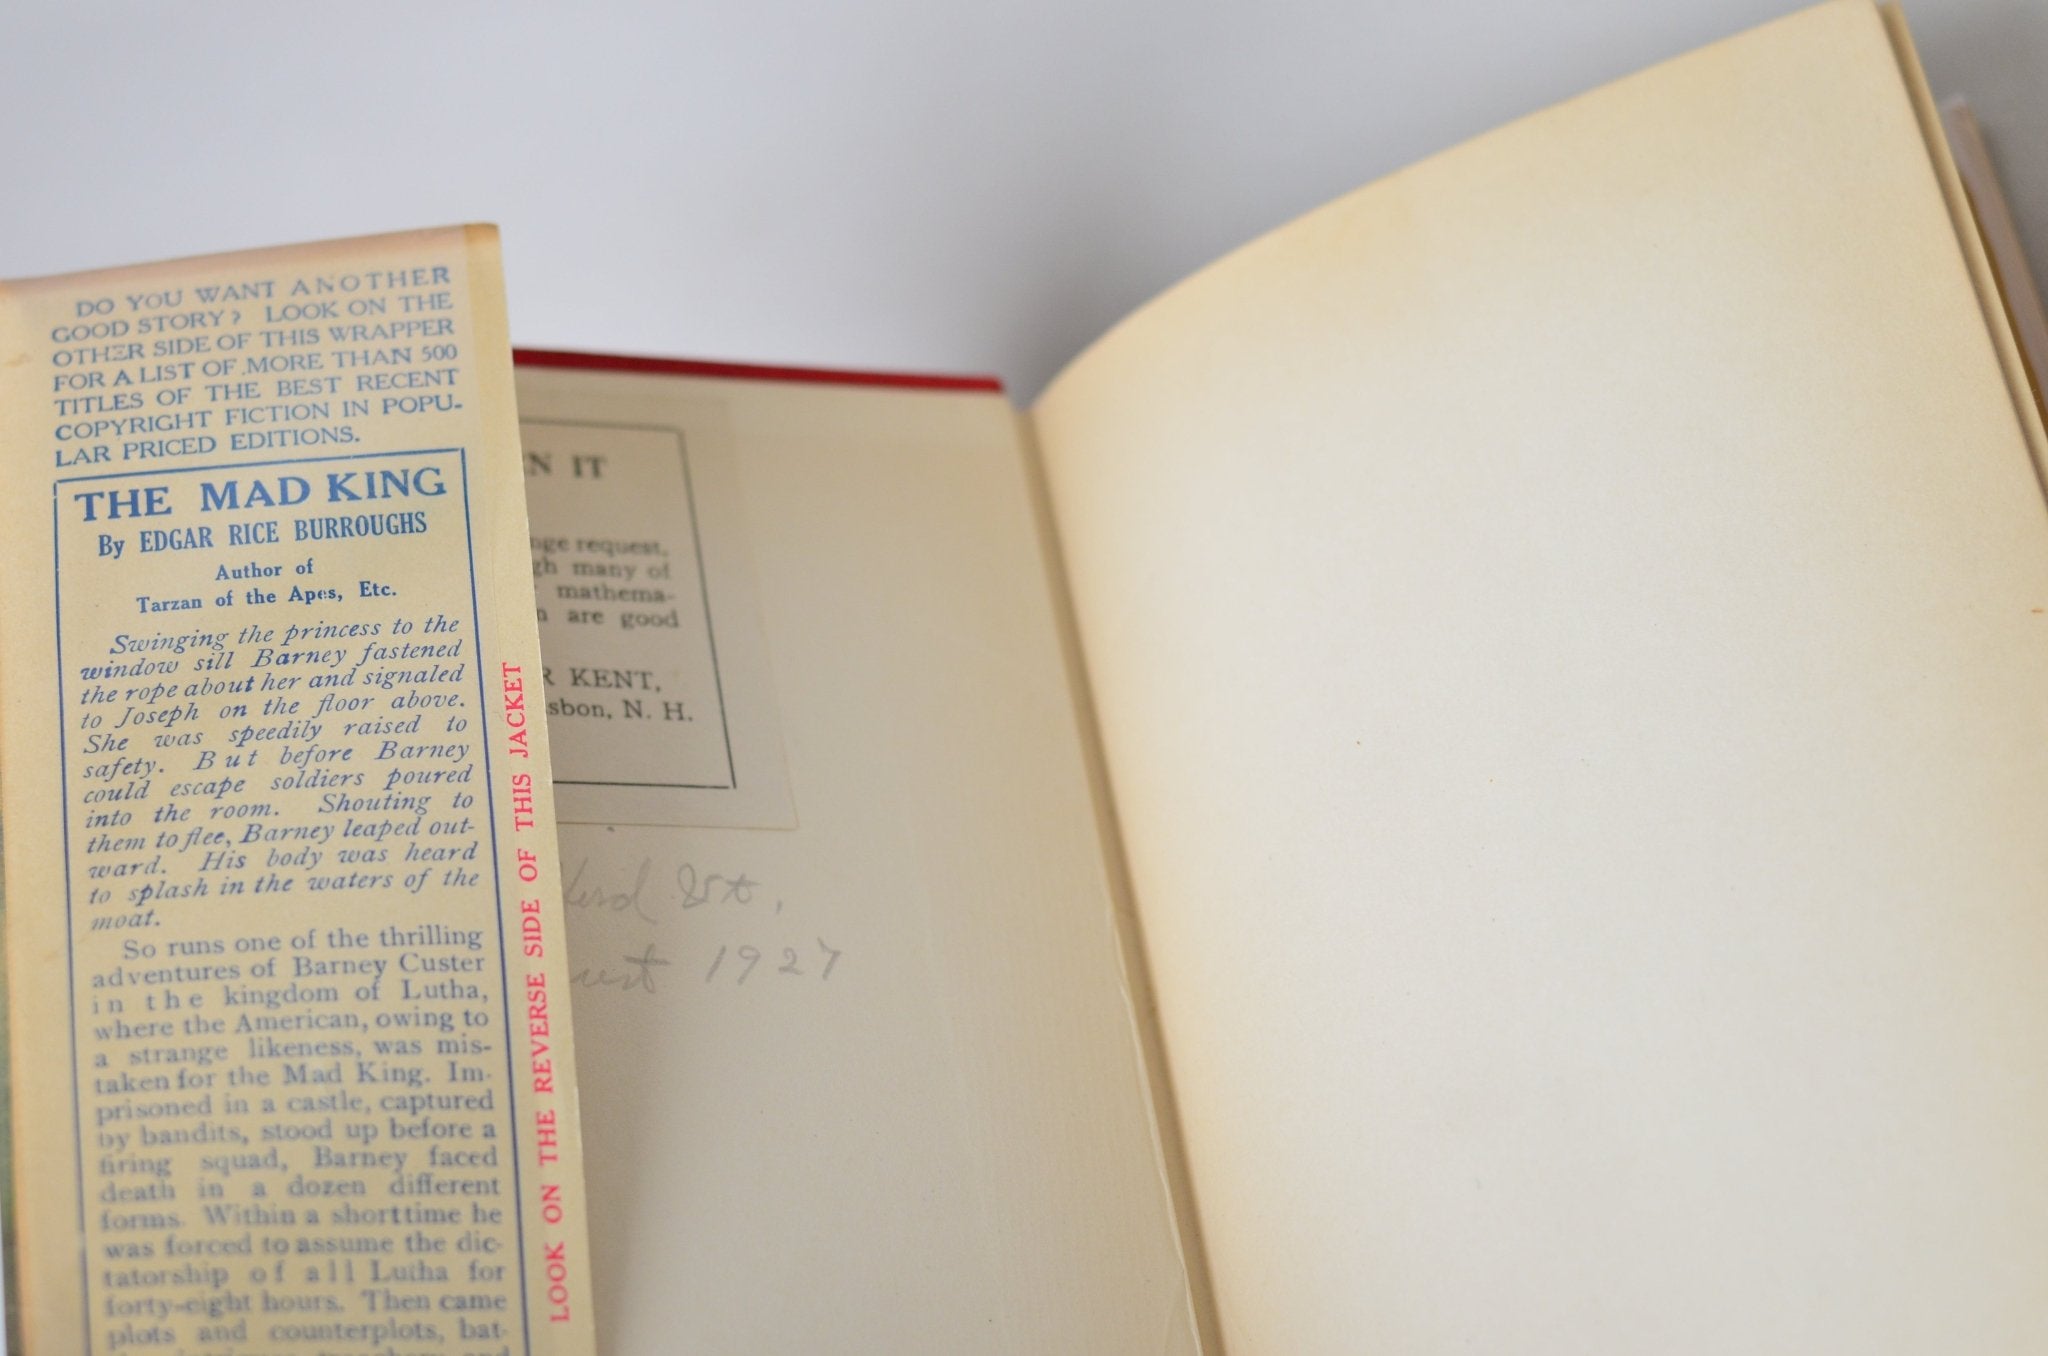 DO YOU WANT ANOTHER
GOOD STORY? LOOK ON THE
OTHER SIDE OF THIS WRAPPER
FOR A LIST OF MORE THAN 500
TITLES OF THE BEST RECENT
COPYRIGHT FICTION IN POPU-
LAR PRICED EDITIONS.
THE MAD KING
By EDGAR RICE BURROUGHS
Author of
Tarzan of the Apes, Etc.
Swinging the princess to the
window sill Barney fastened
the rope about her and signaled
to Joseph on the floor above.
She was speedily raised to
safety. But before Barney
could escape soldiers poured
into the room. Shouting to
them to flee, Barney leaped out-
ward. His body was heard
to splash in the waters of the
moat.
So runs one of the thrilling
adventures of Barney Custer
in the kingdom of Lutha,
where the American, owing to
a strange likeness, was mis-
taken for the Mad King. Im-
prisoned in a castle, captured
by bandits, stood up before a
firing squad, Barney faced
death in a dozen different
forms. Within a short time he
was forced to assume the dic-
tatorship of all Lutha for
forty-eight hours. Then came
plots and counterplots, bat-
LOOK ON THE REVERSE SIDE OF THIS JACKET
N IT
nge request,
gh many of
mathema-
n are good
R KENT,
sbon, N. H.
ust 1927